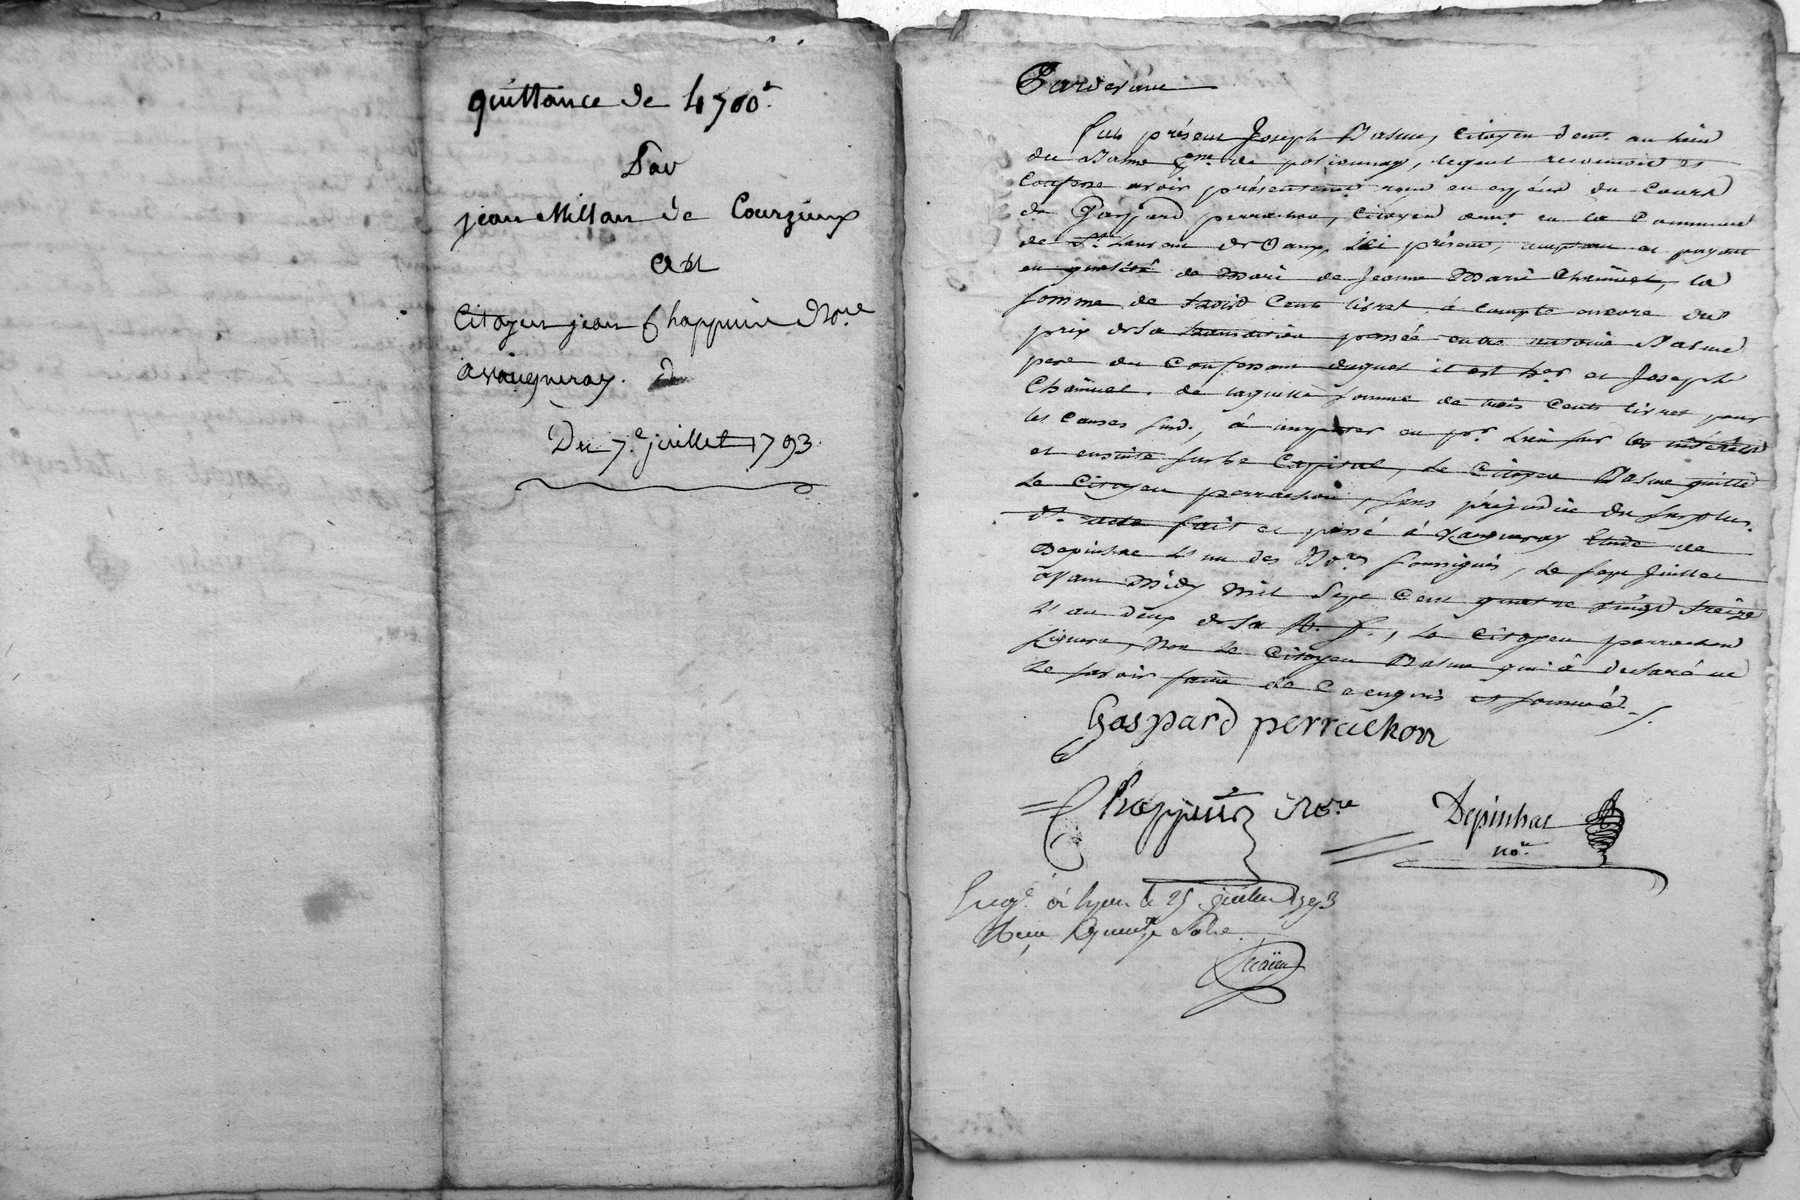 quittance de 4700#
Par
jean Millan de Courzieux
au
Citoyen jean Chappuis Nore
a vaugneray.
Du 7e juillet 1793.
Pardevant
fut présent Joseph citoyen demt au lieu
du de pollionnay, lequel reconnoit et
confesse avoir présentement reçu en espèces du cours
de Gaspard perrachon, citoyen demt en la commune
de St Laurent de Vaux, ici présent, acceptant et payant
en qualité de mari de Jeanne Marie la
somme de trois cents livres à compte encore du
prix de la passée entre antoine
pere du Confessant duquel il est her et Joseph
de laquelle somme de trois cents livres pour
les causes susd., à imputer en pr lieu sur les intérêts
et ensuite sur le Capital, le Citoyen quitte
le Citoyen perrachon, sans préjudice du surplus.
dt acte fait et passé à Vaugneray étude de
Depinhac l'un des Nores soussignés, le sept juillet
avant Midy Mil Sept Cent quatre vingt treize
l'an deux de la R. f., le Citoyen perrachon
signera, Non le Citoyen qui a déclaré ne
le savoir faire de ce enquis et sommé
Gaspard perrachon
Chappuis Nore
Depinhac
nore
Enregé à Lyon le 25 juillet 1793
Reçu